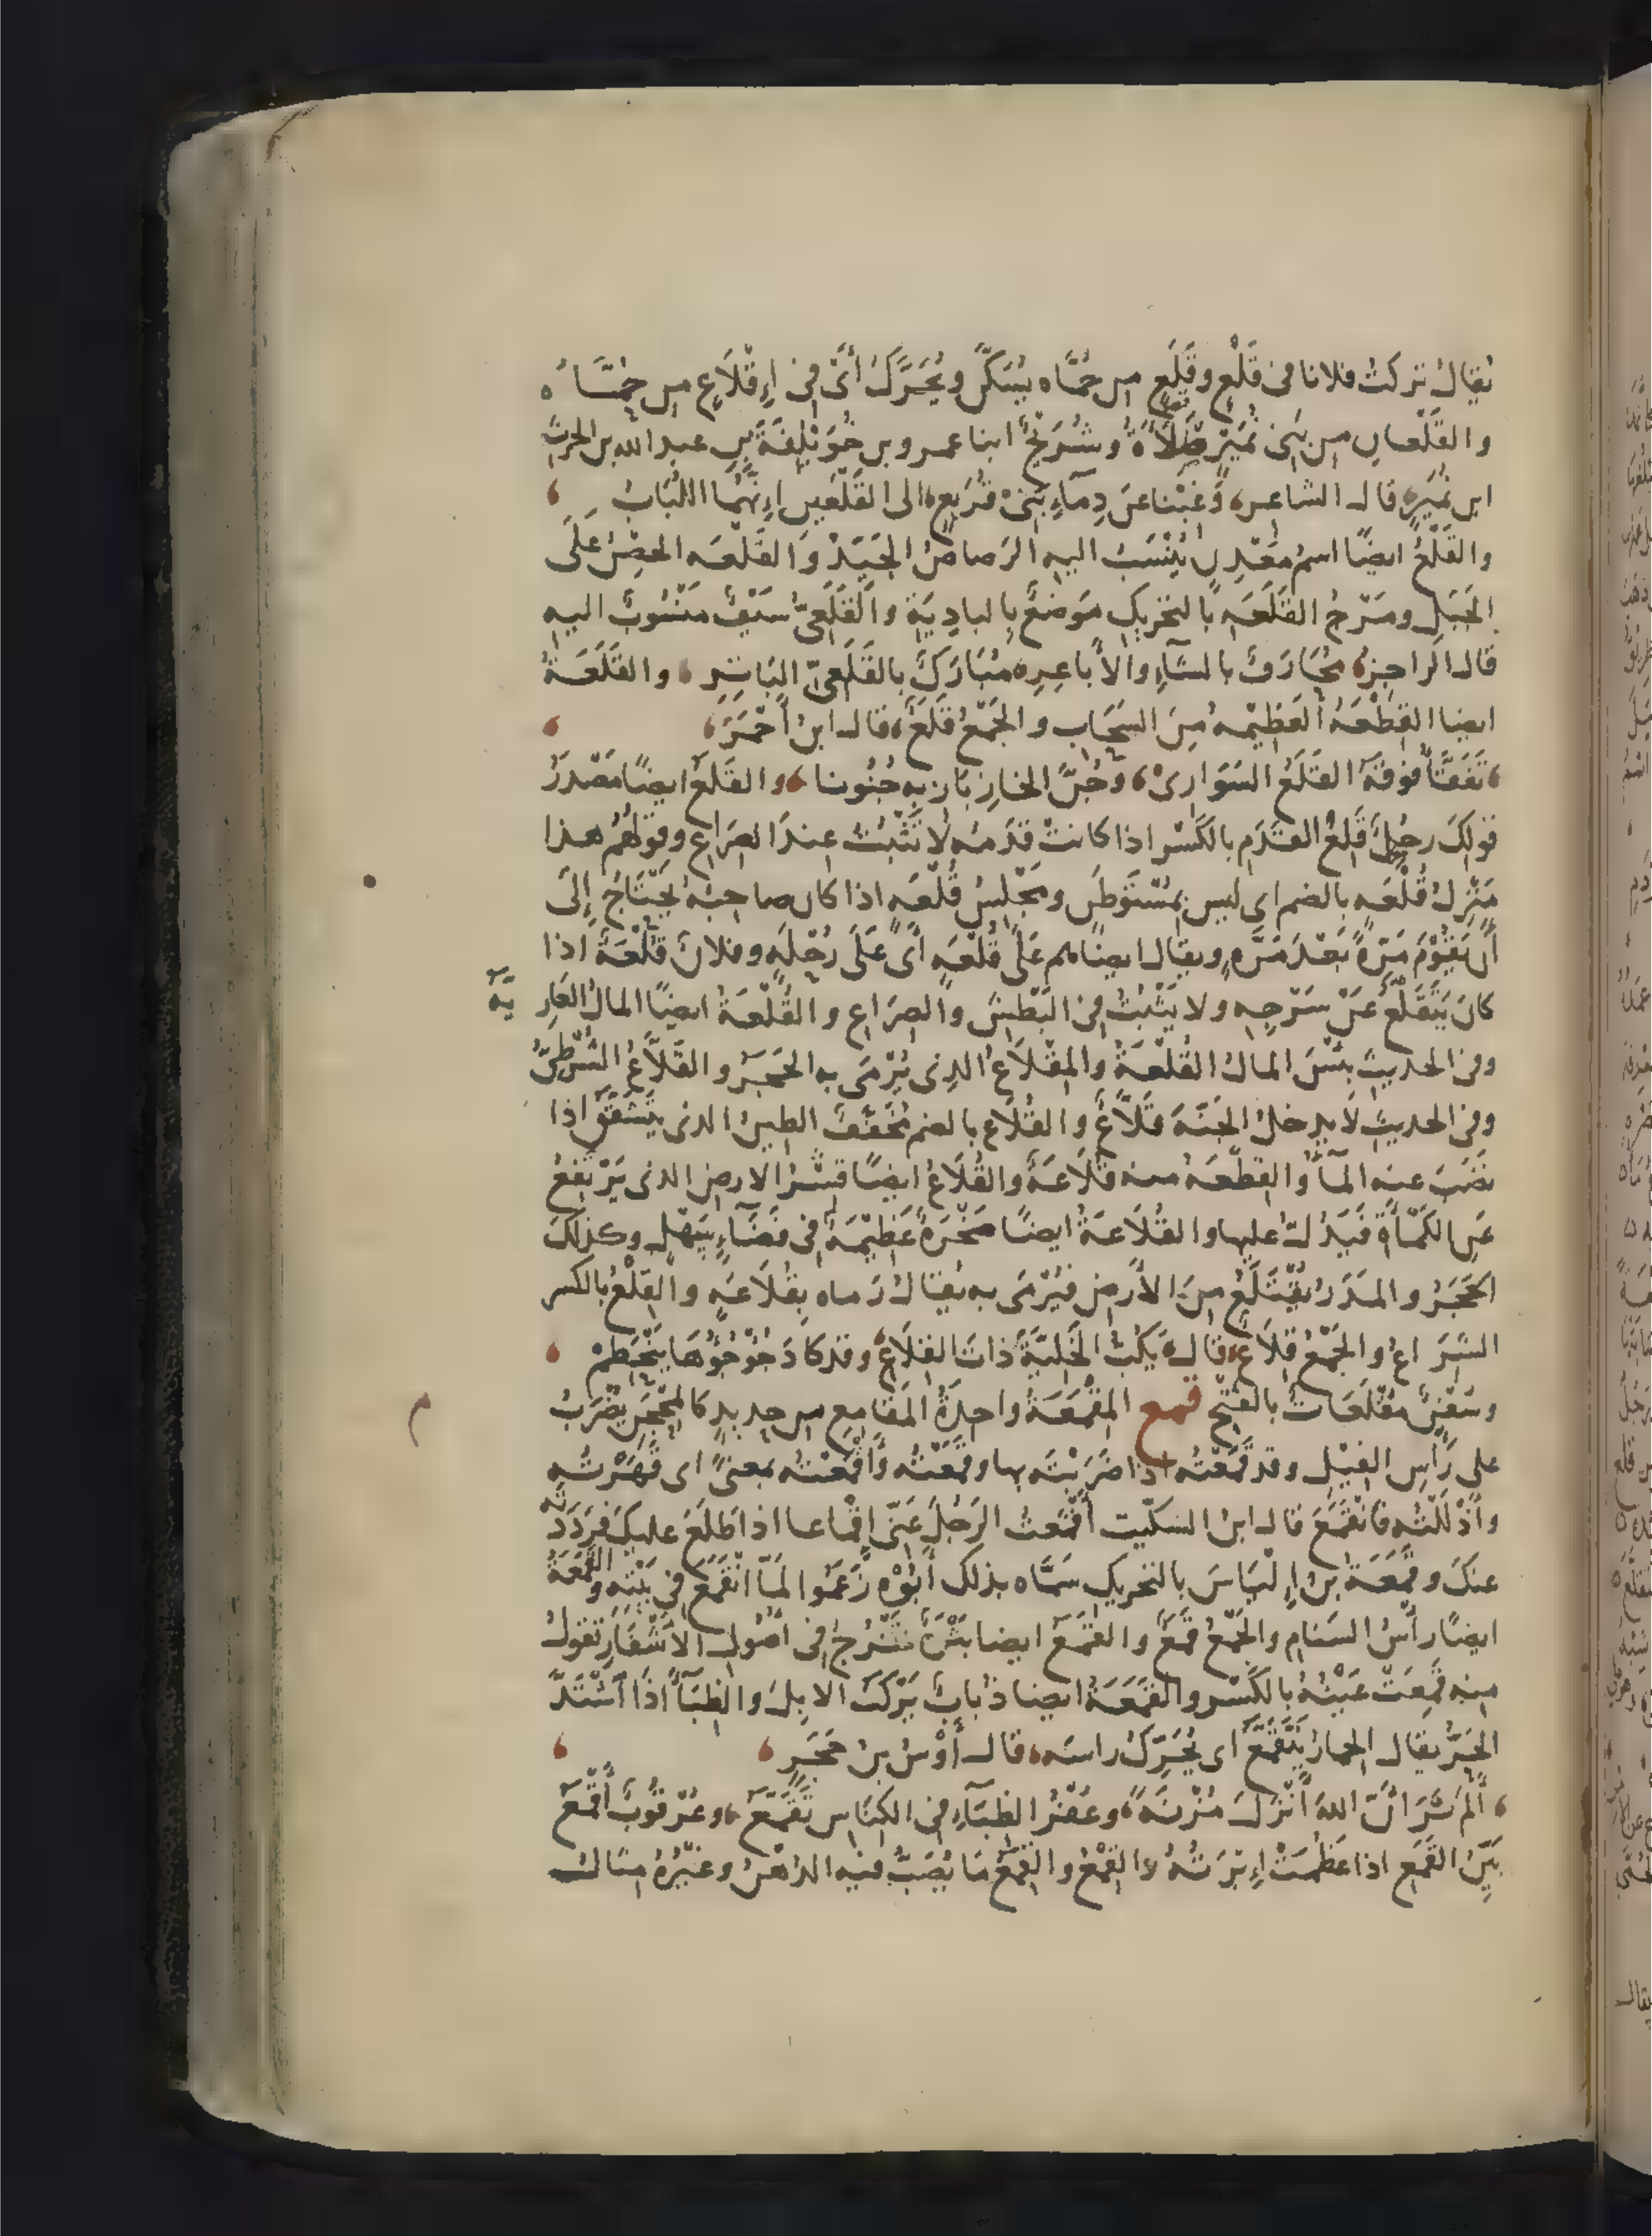 يُقالُ تركتُ فلانا فى قَلْعٍ وقَلَعٍ من حُمَّاه يُسَكَّن ويُحَرَّكُ أَىْ فِى إِقْلَاعٍ من حُمَّاهُ
والقَلْعان من بَنِى نُمَيْرٍ صَلَاءَةُ وشُرَيْحٌ ابنا عمرو بن خُوَيْلِفَةَ بنِ عبد الله بن الحرث
ابن نُمَيرٍ قال الشاعر، رَغِبْنا عَن دِمَآءِ بَنِىْ قُرَيعٍ الى القَلْعَينِ إِنَّهُما اللُّبَابُ
والقَلْعُ ايضًا اسمُ مَعْدِنٍ يُنْسَبُ اليه الرَصاصُ الجَيّدُ وَالقَلْعَه الحِصْنُ عَلَى
الجَبَلِ ومَرْجُ القَلَعَه بالتحريكِ مَوضعٌ بِالبادِيَةِ والقَلَعِىُّ سَيْفٌ مَنْسُوبٌ اليه
قال الراجز، مُحَارَفٌ بالشَآءِ والأَباعِرِ، مُبَارَكٌ بالقَلَعِىِّ البَاتِرِ، والقَلَعَةُ
ايضا القِطْعَهُ العَظِيْمه مِنَ السَحَابِ والجَمْعُ قَلَعٌ، قال ابنُ أَحْمَرَ،
تَفَقَّأَ فوقَهُ القَلَعُ السَوَارِىْ، وجُنَّ الخازِبَازِ به جُنُونا، والقَلَعُ ايضًا مَصْدَرُ
قولكَ رجُلٌ قَلِعُ القَدَمِ بالكَسْر اذا كانتْ قَدَمُه لا تَثْبُتُ عندَ الصِرَاعِ وقولُهُمْ هذا
مَنْزِلُ قُلْعَه بالضم اى ليس بمُسْتَوْطَنٍ ومَجْلِسُ قُلْعَه اذا كان صاحبُهُ يَحْتَاجُ إِلَى
أن يَقُوْمَ مَرّةً بَعْدَ مَرَّهٍ ويقال ايضًا هم عَلَى قُلْعَهٍ أَىْ عَلَى رِحْلَهٍ وفلانٌ قُلْعَةٌ اذا
كانَ يَتَقَلَّعُ عَنْ سَرْجِهِ ولا يَثْبُتُ فِى البَطْشِ والصِرَاعِ والقُلْعَةُ ايضًا المالُ العَارِيَةُ
وفى الحديث بِئْسَ المالُ القُلْعَةُ والمِقْلَاعُ الذِى يُرْمَى به الحَجَرُ والقَلَّاعُ الشُرْطِىُّ
وفى الحديث لَا يدخلُ الجَنّةَ قَلَّاعٌ والقُلَاعُ بالضم مُخَفَّفٌ الطينُ الذى يَتَشَقَّقُ اذا
نَضَبَ عنه المآءُ والقِطْعَهُ منه قُلَاعَةٌ والقُلَاعُ ايضًا قِشْرُ الارضِ الذى يَرْتَفِعُ
عَنِ الكَمْأَةِ فَيَدُلُّ عليها والقُلَاعَةُ ايضًا صَخْرَةٌ عَظِيْمَةٌ فِى فَضَآءٍ سَهْلٍ وكذلكَ
الحَجَرُ والمَدَرُ يُقْتَلَعُ مِنَ الأَرْضِ فيُرْمَى به يُقالُ رَماه بِقُلَاعَهٍ والقِلْعُ بالكسر
الشِرَاعُ والجَمْعُ قِلَاعٌ، قال يَكُبُّ الخَلِيَّةَ ذاتَ القِلَاعِ وقد كادَ جُؤْجُؤُهَا يَنْحَطِمْ
وسُفُنٌ مُقْلَعَاتٌ بالفَتْح قمع المِقْمَعَةُ واحِدَةُ المَقَامِعِ من حديدٍ كالمِحْجَنِ يُضْرَبُ
على رَأسِ الفِيْلِ وقد قَمَعْتُه اذا ضَرَبْتَه بها وقَمَعْتُه وأَقْمَعْتُه بمعنىً اى قَهَرْتُه
وأَذْلَلْتُه فانْقَمَعَ قال ابنُ السِكِّيت أَقْمَعتُ الرَجُلَ عَنِّى إقْماعا اذا طَلَعَ عليكَ فرَدَدْتَه
عنكَ وقَمَعَةُ بنُ إِلْيَاسَ بالتحريكِ سَمَّاه بذلكَ أَبُوْهُ زَعَمُوا لمّا انْقَمَعَ فى بَيْتِه والقَمَعَةُ
ايضًا رَأْسُ السَنَامِ والجَمْعُ قَمَعٌ والقَمَعُ ايضا بَثْرَةٌ تَخْرُجُ فى أُصُولِ الأَشْفَارِ تقولُ
منه قَمِعَتْ عَيْنُهُ بالكَسْرِ والقَمَعَةُ ايضا ذُبابٌ يَرْكَبُ الابِلَ والظِبَآءَ اذَا اشْتَدَّ
الحَرُّ يقال الحمارُ يَتَقَمَّعُ اى يُحَرِّكُ راسَه، قال أَوْسُ بنُ حَجَرٍ
أَلَمْ تَرَ انَّ اللهَ أَنْزَلَ مُزْنَةً، وعُفْرُ الظِبَآءِ فى الكِنَاسِ تَقَمَّعُ، وعُرْقُوبٌ أَقْمَعُ
بَيِّنُ القَمَعِ اذا عَظُمَتْ إِبْرَتُهُ والقِمْعُ والقِمَعُ مَا يُصَبُّ فيه الدُهْنُ وغيْرُهُ مثالُ